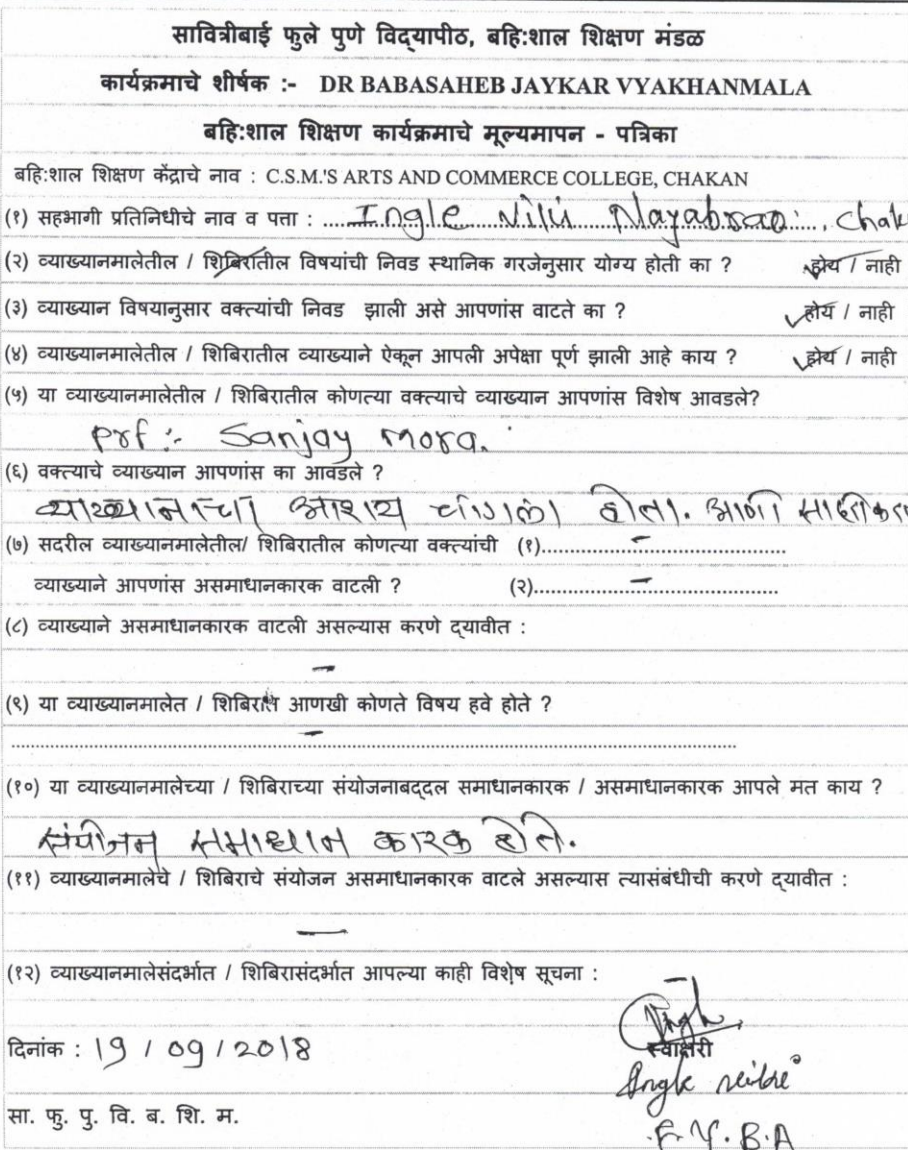 सावित्रीबाई फुले पुणे विद्यापीठ, बहि:शाल शिक्षण मंडळ
कार्यक्रमाचे शीर्षक :- DR BABASAHEB JAYKAR VYAKHANMALA
बहि:शाल शिक्षण कार्यक्रमाचे मूल्यमापन - पत्रिका
बहि:शाल शिक्षण केंद्राचे नाव : C.S.M.'S ARTS AND COMMERCE COLLEGE, CHAKAN
(१) सहभागी प्रतिनिधीचे नाव व पत्ता : Ingle Nilu Nayabrao, Chak
(२) व्याख्यानमालेतील / शिबिरातील विषयांची निवड स्थानिक गरजेनुसार योग्य होती का ? होय / नाही
(३) व्याख्यान विषयानुसार वक्त्यांची निवड झाली असे आपणांस वाटते का ? होय / नाही
(४) व्याख्यानमालेतील / शिबिरातील व्याख्याने ऐकून आपली अपेक्षा पूर्ण झाली आहे काय ? होय / नाही
(५) या व्याख्यानमालेतील / शिबिरातील कोणत्या वक्त्याचे व्याख्यान आपणांस विशेष आवडले?
Prf :- Sanjay mora.
(६) वक्त्याचे व्याख्यान आपणांस का आवडले ?
व्याख्यानाचा आशय चांगला होता. आणी
(७) सदरील व्याख्यानमालेतील/ शिबिरातील कोणत्या वक्त्यांची (१)..... -
व्याख्याने आपणांस असमाधानकारक वाटली ? (२)..... -
(८) व्याख्याने असमाधानकारक वाटली असल्यास करणे द्यावीत :
-
(९) या व्याख्यानमालेत / शिबिरास आणखी कोणते विषय हवे होते ?
-
(१०) या व्याख्यानमालेच्या / शिबिराच्या संयोजनाबद्दल समाधानकारक / असमाधानकारक आपले मत काय ?
संयोजन समाधान कारक होते.
(११) व्याख्यानमालेचे / शिबिराचे संयोजन असमाधानकारक वाटले असल्यास त्यासंबंधीची करणे द्यावीत :
-
(१२) व्याख्यानमालेसंदर्भात / शिबिरासंदर्भात आपल्या काही विशेष सूचना :
-
दिनांक : 19 / 09 / 2018
स्वाक्षरी
सा. फु. पु. वि. ब. शि. म.
F.Y.B.A